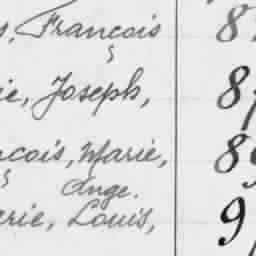 s, François 8
ie, Joseph, 8
ncois, Marie, 8
Ange.
erie, Louis, 9